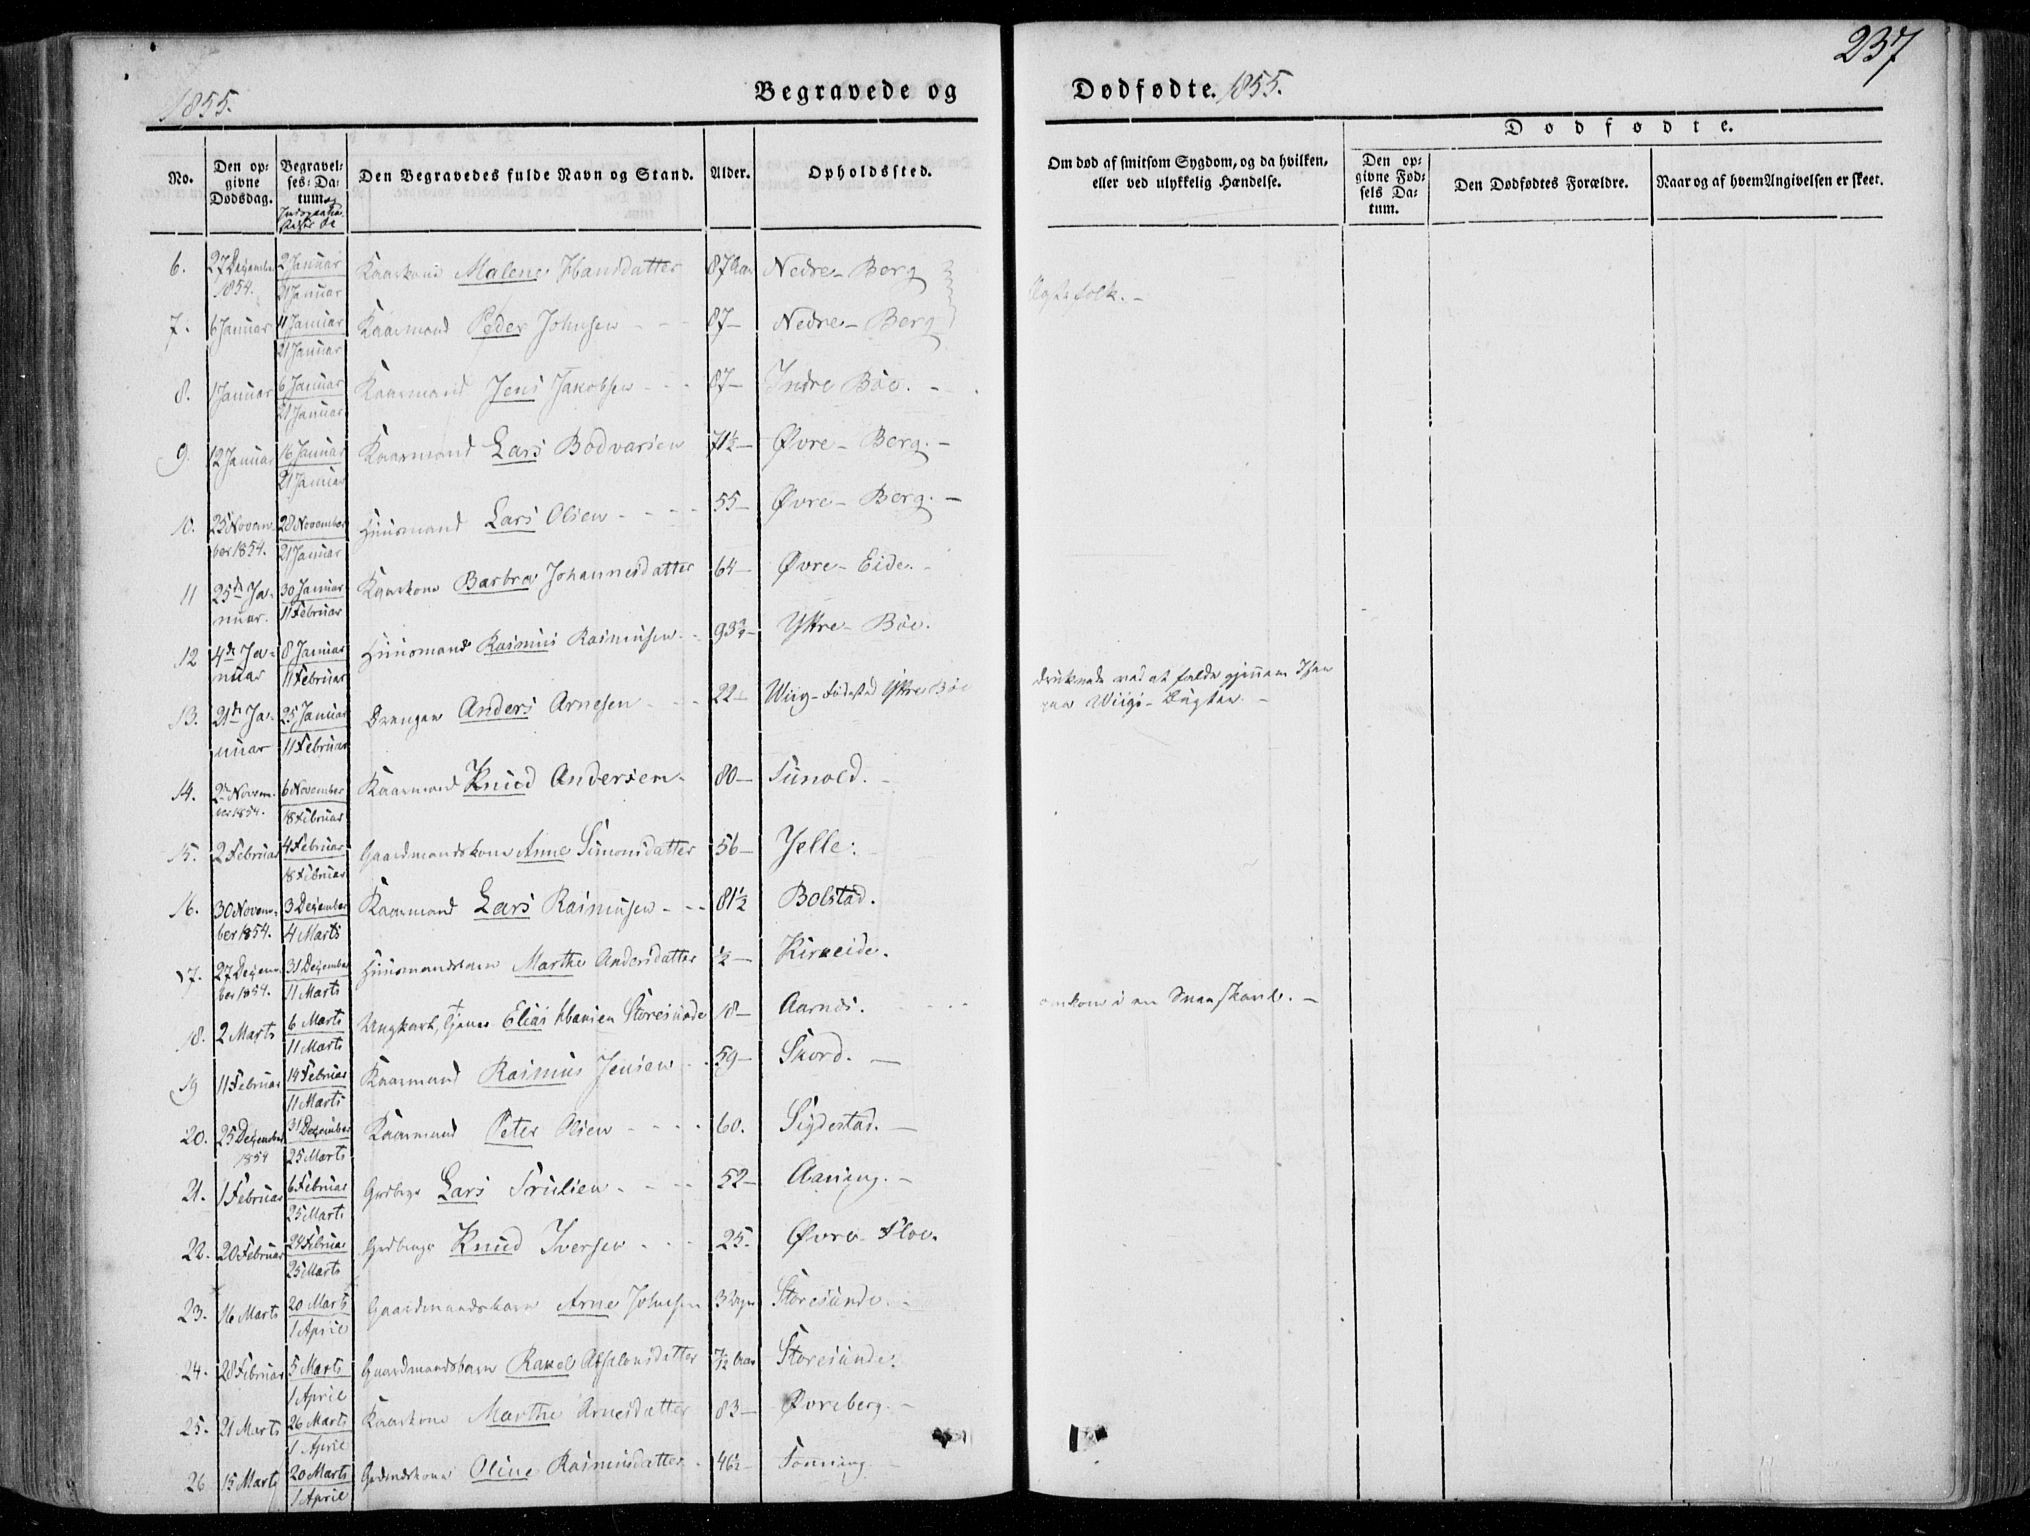 237
1855. Begravede og Dødfødte. 1855.
Dødfødte.
No. Den opgivne Dødsdag. Begravelses-Datum og Den Begravedes fulde Navn og Stand. Alder. Opholdssted. Om død af smitsom Sygdom, og da hvilken, eller ved ulykkelig Hændelse. Den opgivne Fødsels Datum. Den Dødfødtes Forældre. Naar og af hvem Angivelsen er skeet.
6. 27 Dezember 1854. 2 Januar 21 Januar Kaarkone Malene Hansdatter 87 Aar Nedre-Berg Egtefolk. -
7. 6 Januar 11 Januar 21 Januar Kaarmand Peder Johnsen - - - 87- Nedre-Berg
8. 1 Januar 6 Januar 21 Januar Kaarmand Jens Jakobsen - - - 87- Indre Böe. -
9. 12 Januar 16 Januar 21 Januar Kaarmand Lars Bodvarsen 71½- Øvre-Berg. -
10. 25 November 1854. 28 November 21 Januar Huusmand Lars Olsen - - - - 55- Øvre-Berg. -
11 25de Januar. 30 Januar 11 Februar Kaarkone Barbra Johannesdatter 64- Øvre-Eide. -
12 4de Januar 8 Januar 11 Februar Huusmand Rasmus Rasmusen - 93¾- Yttre-Böe.
13. 21de Januar 25 Januar 11 Februar Drengen Anders Arnesen - - - 22- Wiig-Födested Yttre Böe druknede ved at falde gjennem Isen paa Wiigs-Bugten. -
14. 2de November 1854. 6 November 18 Februar Kaarmand Knud Andersen - 80- Sunold. -
15. 2 Februar 4 Februar 18 Februar Gaardmandskone Anne Simonsdatter 56- Jelle.
16. 30 November 1854. 3 Dezember 4 Marts Kaarmand Lars Rasmusen - - - 81½ Bolstad.
17. 27 Dezember 1854. 31 Dezember 11 Marts Huusmandsbarn Marthe Andersdatter ½- Kirkeide.
18. 2 Marts 6 Marts 11 Marts Ungkarl, Tjener Elias Hansen Storesunde 18- Aarnes. omkom i en Sneeskavl. -
19 11 Februar 14 Februar 11 Marts Kaarmand Rasmus Jensen - - 59- Skord. -
20. 25 Dezember 1854 31 Dezember 25 Marts Kaarmand Peter Olsen - - - - 60. Sigdestad. -
21. 1 Februar 6 Februar 25 Marts Lars Trulsen - - - - 52- Aaning. -
22. 20 Februar 24 Februar 25 Marts Knud Iversen - - - 25. Øvre-Floe.
23. 16 Marts 20 Marts 1 April Gaardmandsbarn Arne Johnsen 3 Dage Storesunde. -
24. 28 Februar 5 Marts 1 April Gaardmandsbarn Rakel Absalonsdatter 7/12 Aar Storesunde.
25. 21 Marts 26 Marts 1 April Kaarkone Marthe Arnesdatter 83- Øvreberg. -
26 15 Marts 20 Marts 1 April Oline Rasmusdatter - 46½- Tonning. -